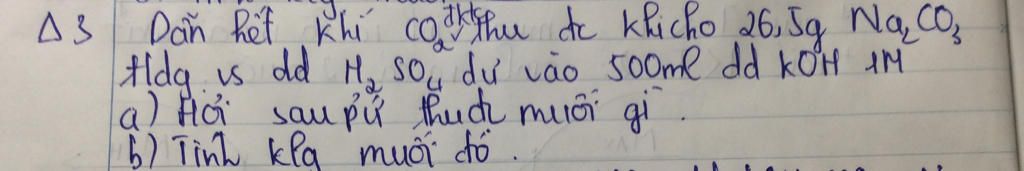 Δ3 Dẫn hết khí CO₂ đktc thu đc khi cho 26,5g Na₂CO₃
tdg vs dd H₂SO₄ dư vào 500ml dd KOH 1M
a) Hỏi sau pứ thu đc muối gì.
b) Tính klg muối đó.